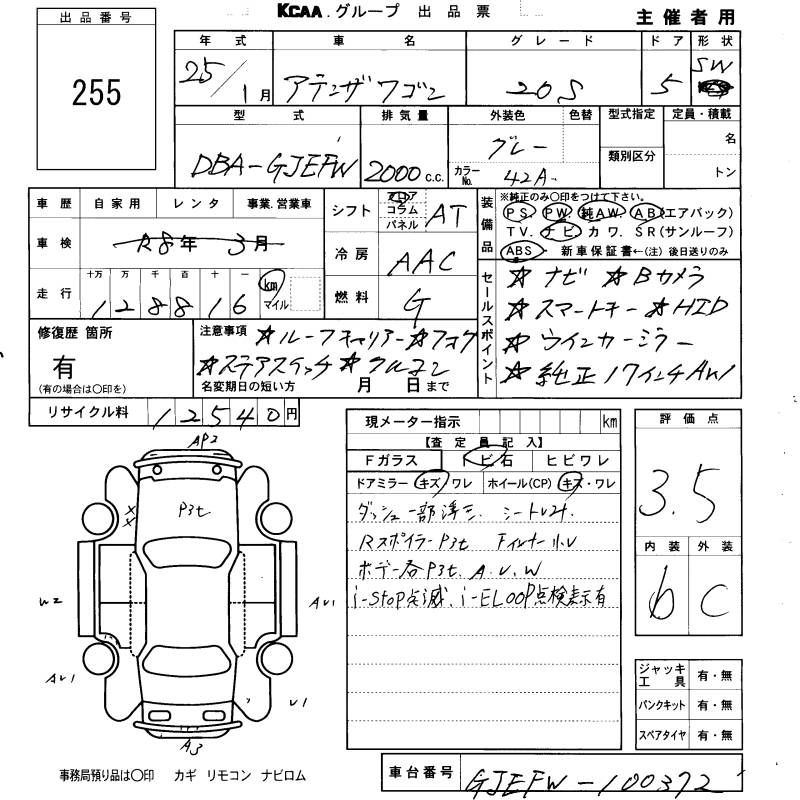 KCAA.グループ 出品票
主催者用
出品番号
255
年式 車名 グレード ドア 形状
25/1月 アテンザワゴン 20S 5 SW
型式 排気量 外装色 色替 型式指定 定員・積載
DBA-GJEFW 2000c.c. グレー 名
カラーNo. 42A 類別区分 トン
車歴 自家用 レンタ 事業.営業車
シフト フロア コラム パネル AT
装備品
※純正のみ○印をつけて下さい。
PS. PW. 純AW. AB(エアバック)
TV. ナビ. カワ. SR(サンルーフ)
ABS・ 新車保証書←(注)後日送りのみ
車検 R8年 3月
冷房 AAC
走行 十万 万 千 百 十 一
128816 km マイル
燃料 G
セールスポイント
☆ナビ ☆Bカメラ
☆スマートキー ☆HID
☆ウインカーミラー
☆純正17インチAW
修復歴 箇所
有
(有の場合は○印を)
注意事項 ☆ルーフキャリアー ☆フォグ
☆ステアスイッチ ☆クルコン
名変期日の短い方 月 日まで
リサイクル料 12540円
現メーター指示 km
【査定員記入】
Fガラス トビ石 ヒビワレ
ドアミラー キズ/ワレ ホイール(CP) キズ・ワレ
ダッシュ一部浮き. シートレスレ.
Rスポイラー P3t フィルナー小U
ボデー各P3t. A. U. W
i-stop点滅. i-ELOOP点検表示有
評価点
3.5
内装 外装
b C
ジャッキ工具 有・無
パンクキット 有・無
スペアタイヤ 有・無
AP2
P3t
W2
AU1
AU1
U1
A3
事務局預り品は○印 カギ リモコン ナビロム
車台番号 GJEFW-100372